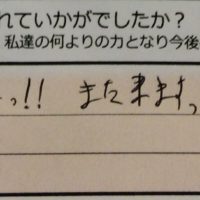 れていかがでしたか？
私達の何よりの力となり今後
っ!! また来ますっ